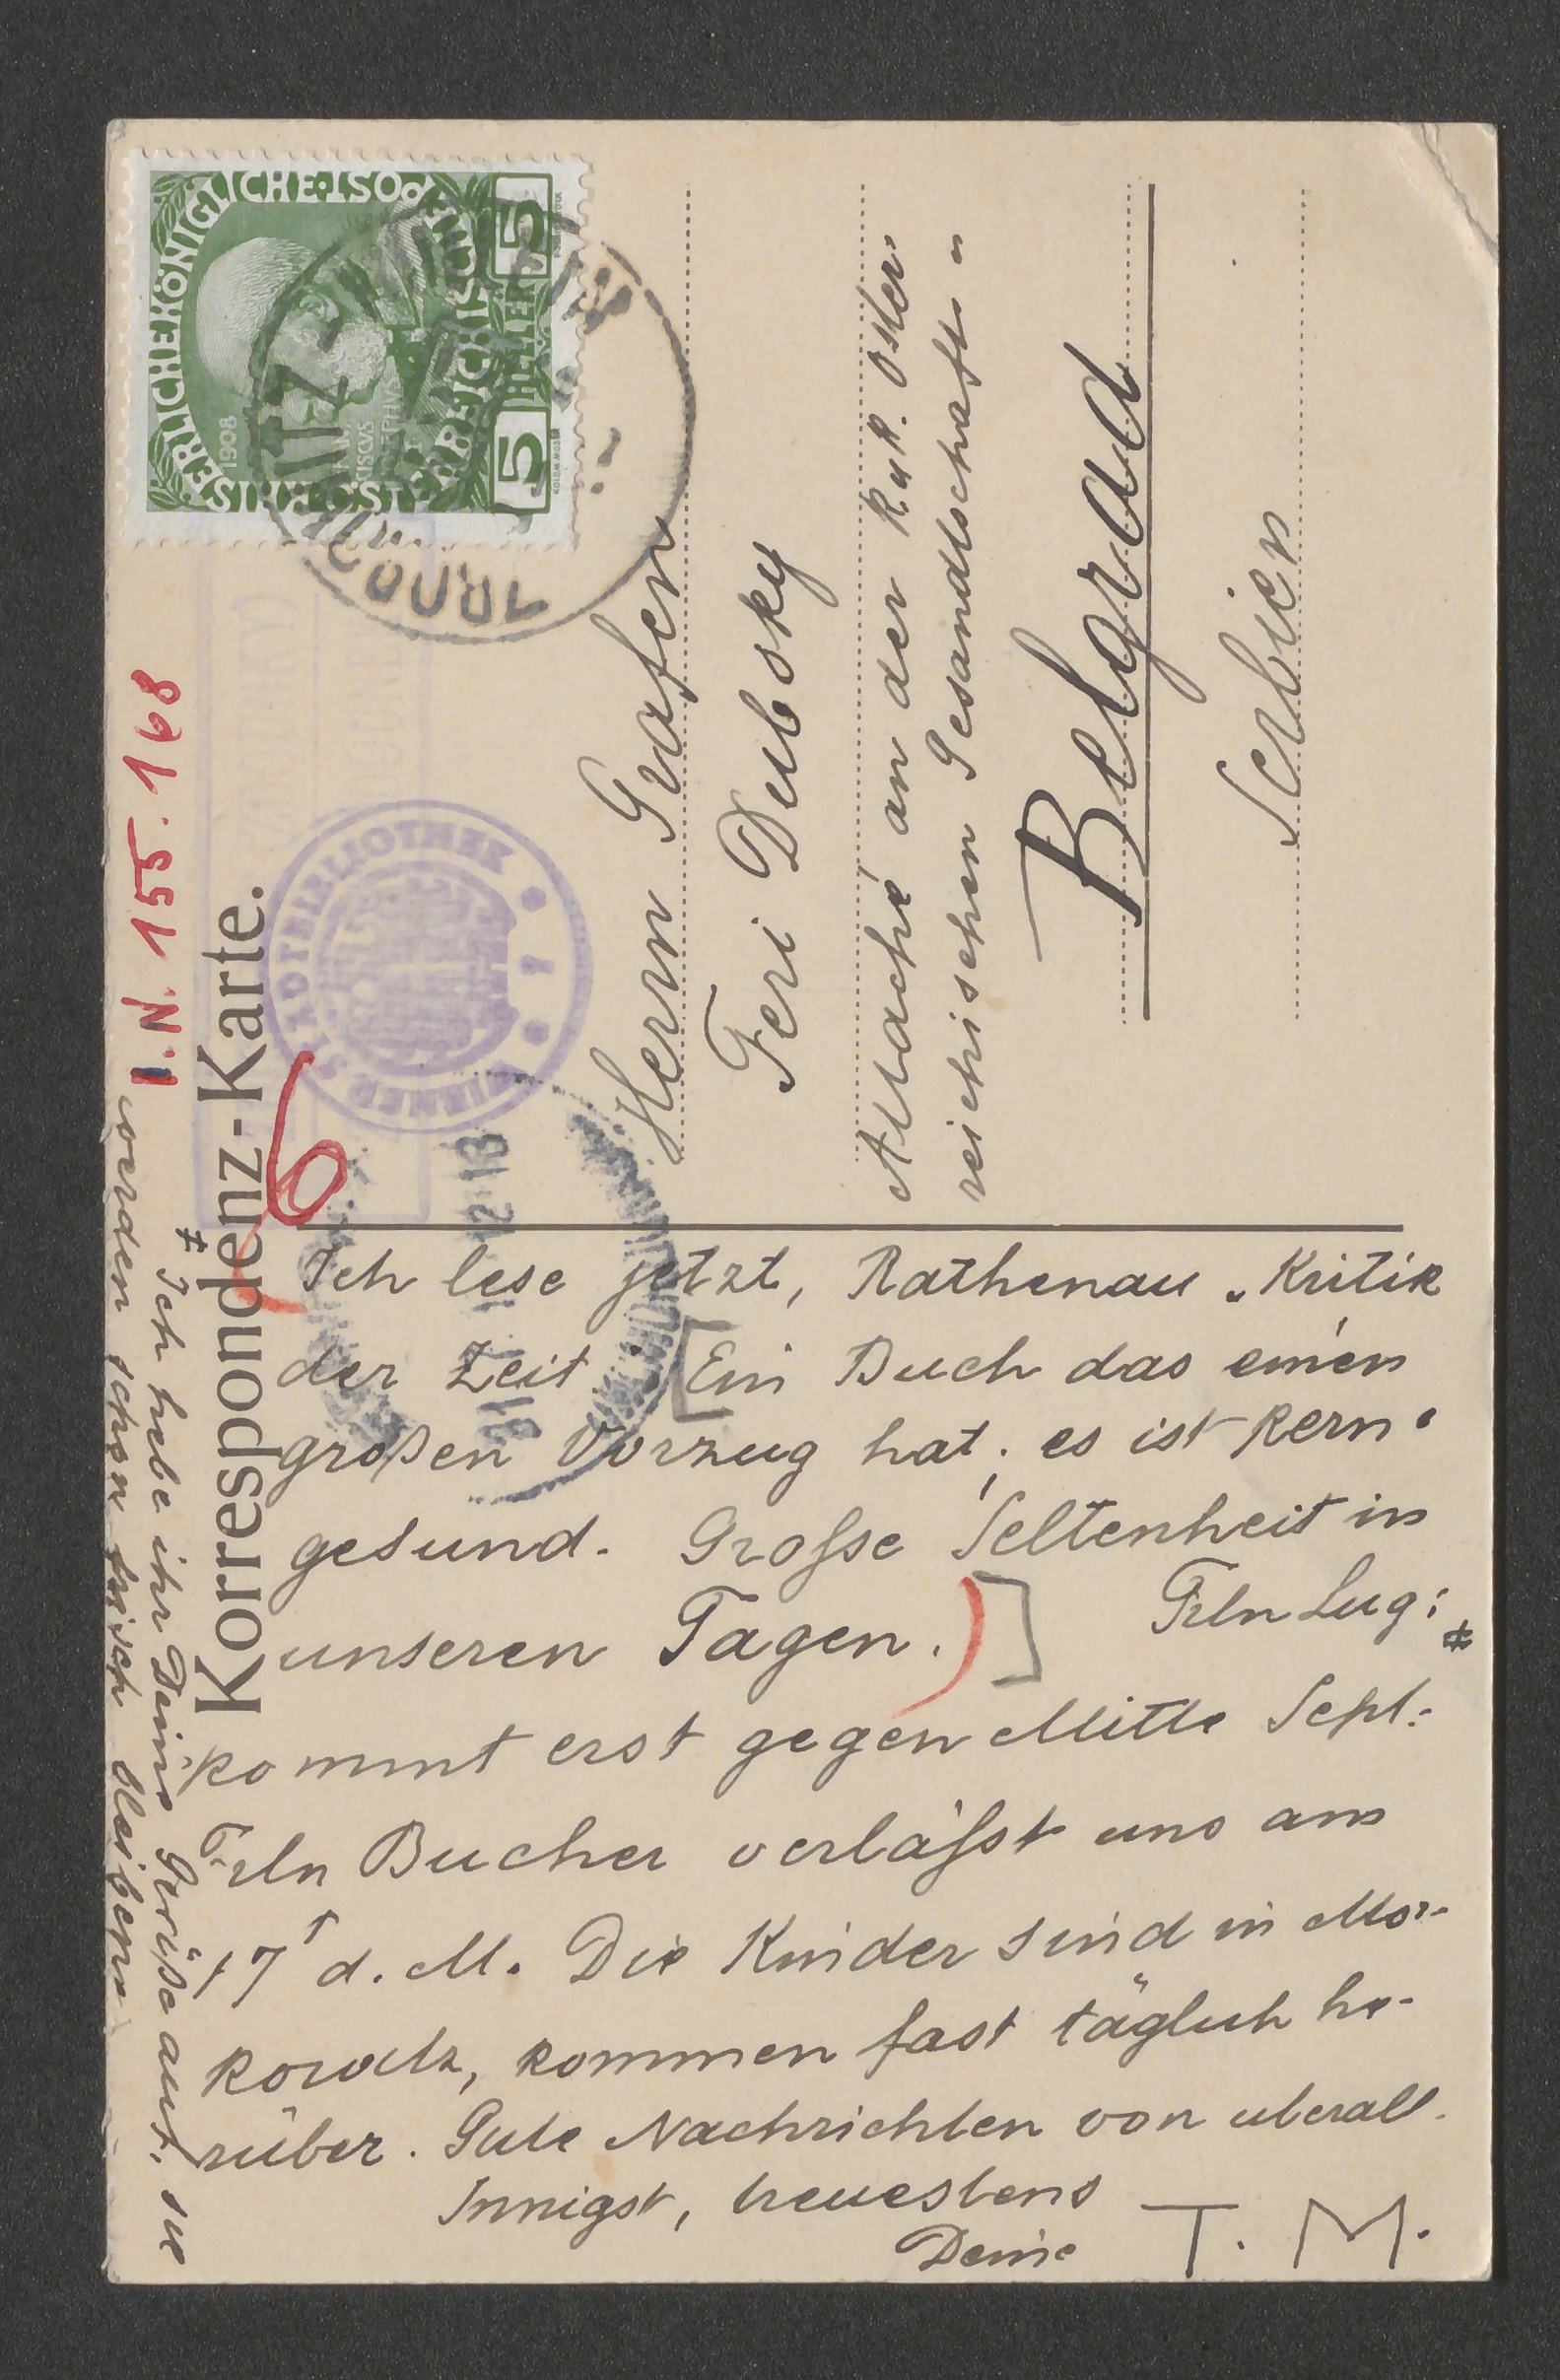 KAISERLICHE KÖNIGLICHE ÖSTERREICHISCHE POST
1908
5 HELLER 5
I.N. 155.168
Korrespondenz-Karte.
WIENER STADTBIBLIOTHEK
6
Herrn Grafen
Feri Dubsky
Attaché an der k u k. öster
reichischen Gesandtschaft in
Belgrad
Serbien
Ich lese jetzt, Rathenau „Kritik
der Zeit. [Ein Buch das einen
großen Vorzug hat; es ist kern-
gesund. Grosse Seltenheit in
unseren Tagen.] Frln Lug: ‡
kommt erst gegen Mitte Sept.
Frln Bucher verlässt uns am
17t d. M. Die Kinder sind in Mor-
kowitz, kommen fast täglich he-
rüber. Gute Nachrichten von überall.
Innigst, treuestens
Deine T. M.
‡ Ich habe ihr Deine Grüße